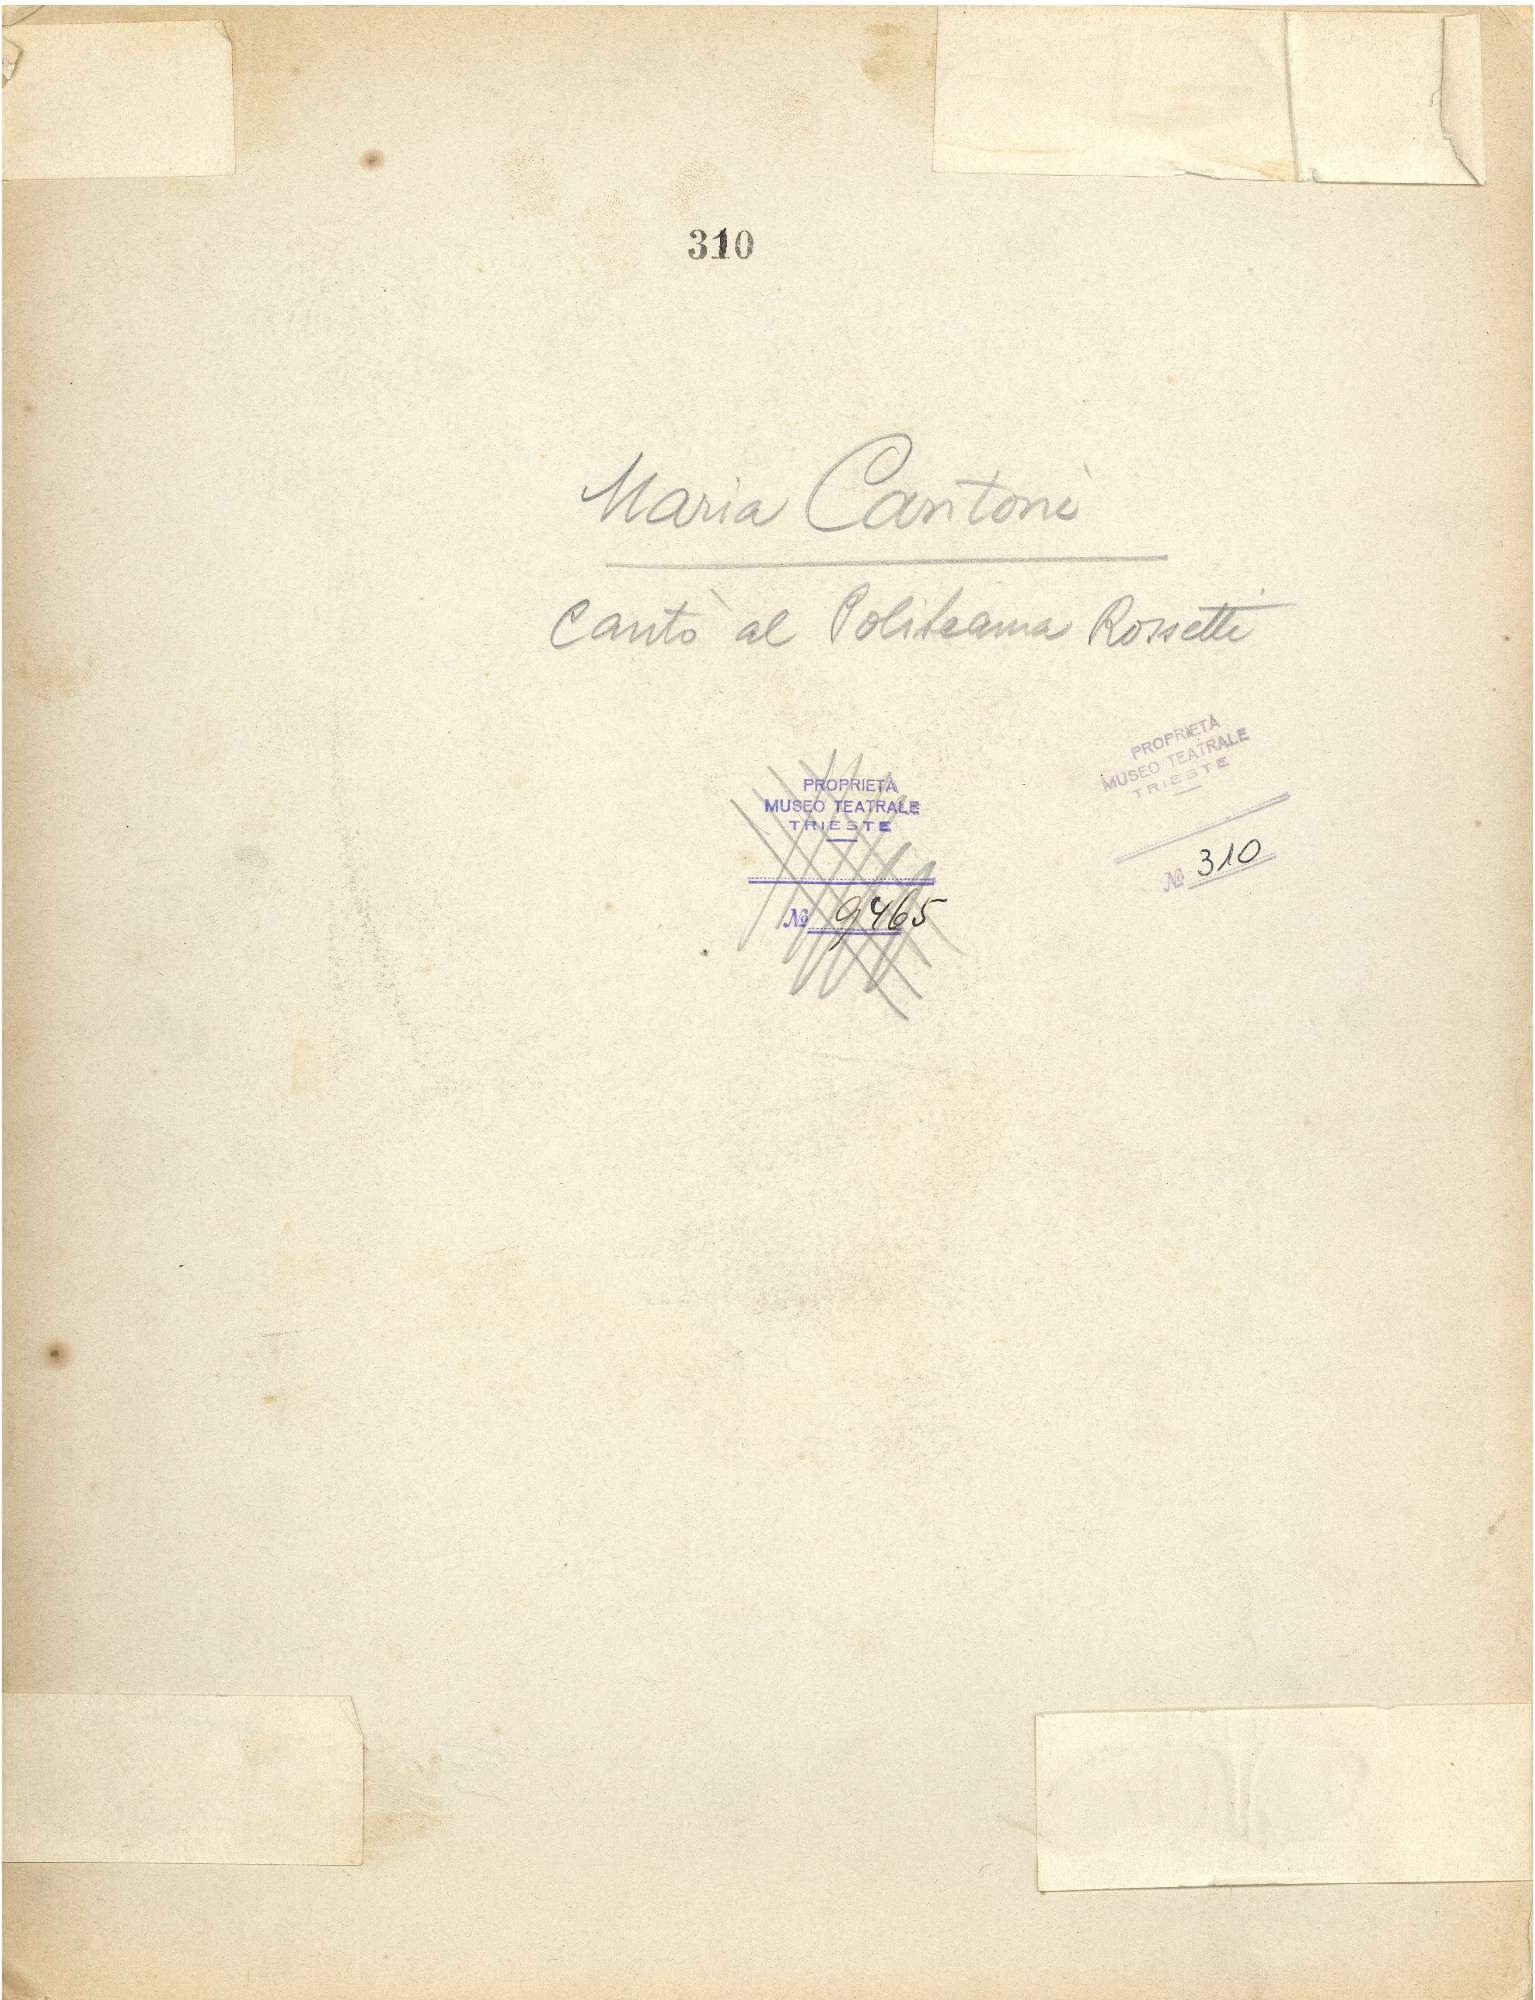 310
Maria Cantoni
Cantò al Politeama Rossetti
PROPRIETÀ
MUSEO TEATRALE
TRIESTE
№ 9465
PROPRIETÀ
MUSEO TEATRALE
TRIESTE
№ 310